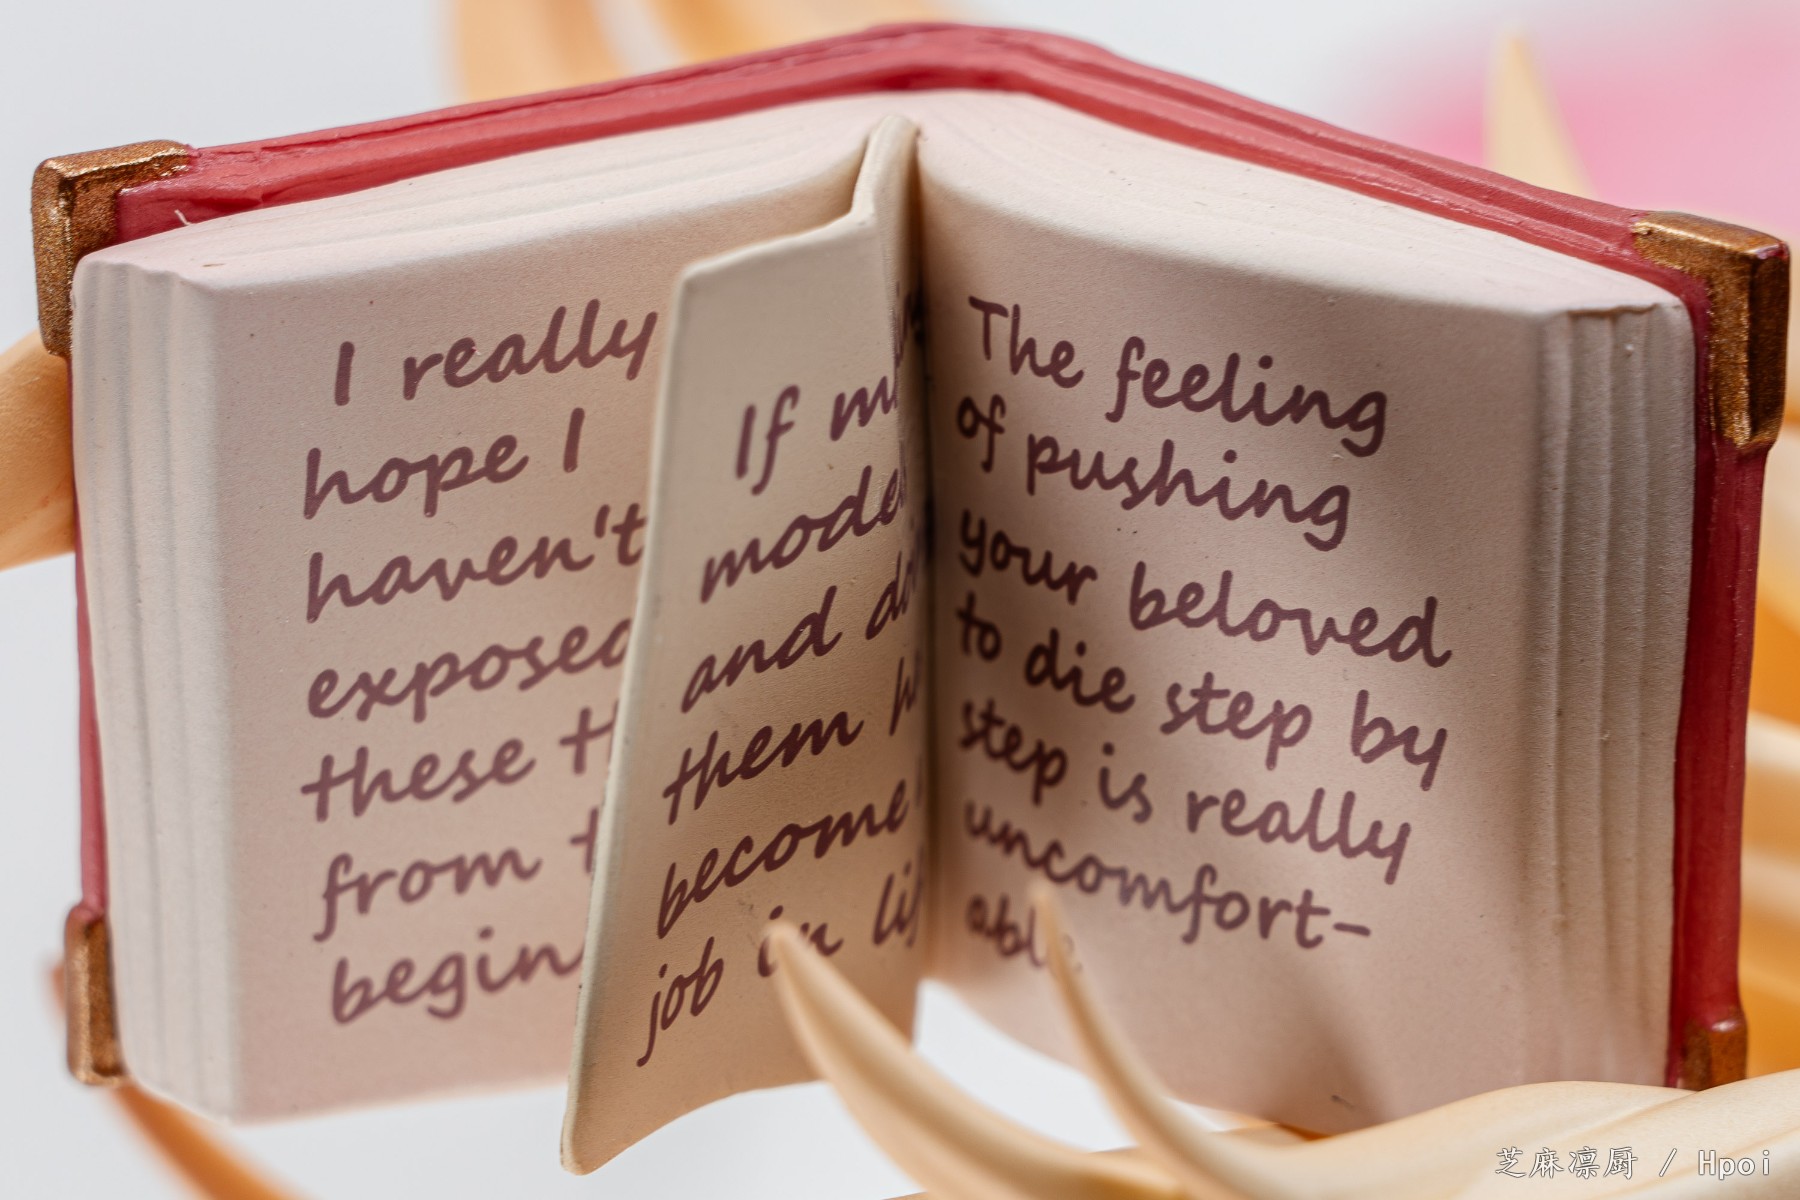 I really
hope I
haven't
exposed
these
from
If
model
and
them
become
job in
The feeling
of pushing
your beloved
to die step by
step is really
uncomfort-
able
芝麻凛厨 / Hpoi